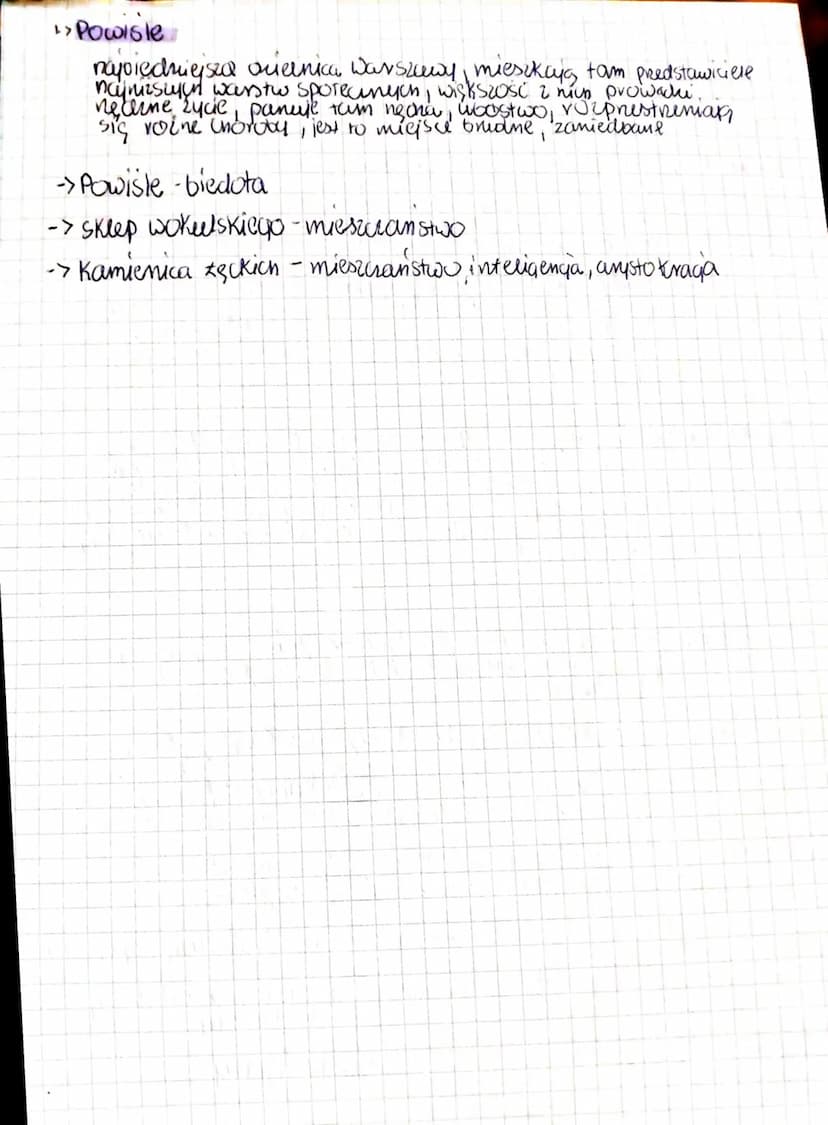 ↳ Powiśle
najbiedniejsza dzielnica Warszawy, mieszkają tam przedstawiciele
najniższych warstw społecznych, większość z nich prowadzi
nędzne życie, panuje tam nędza, ubóstwo, rozprzestrzeniają
się różne choroby, jest to miejsce brudne, zaniedbane
-> Powiśle - biedota
-> sklep wokulskiego - mieszczaństwo
-> Kamienica Łęckich - mieszczaństwo, inteligencja, arystokracja